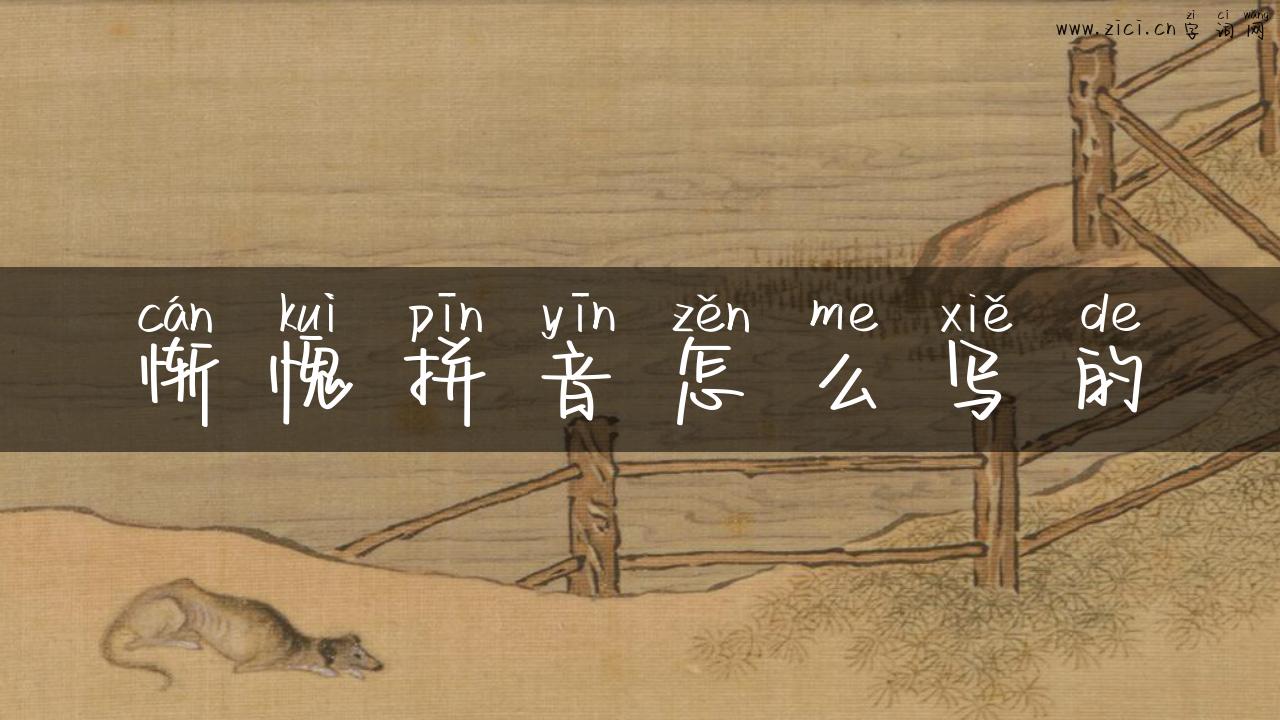 zì cí wǎng
www.zici.cn字词网
cán kuì pīn yīn zěn me xiě de
惭愧拼音怎么写的